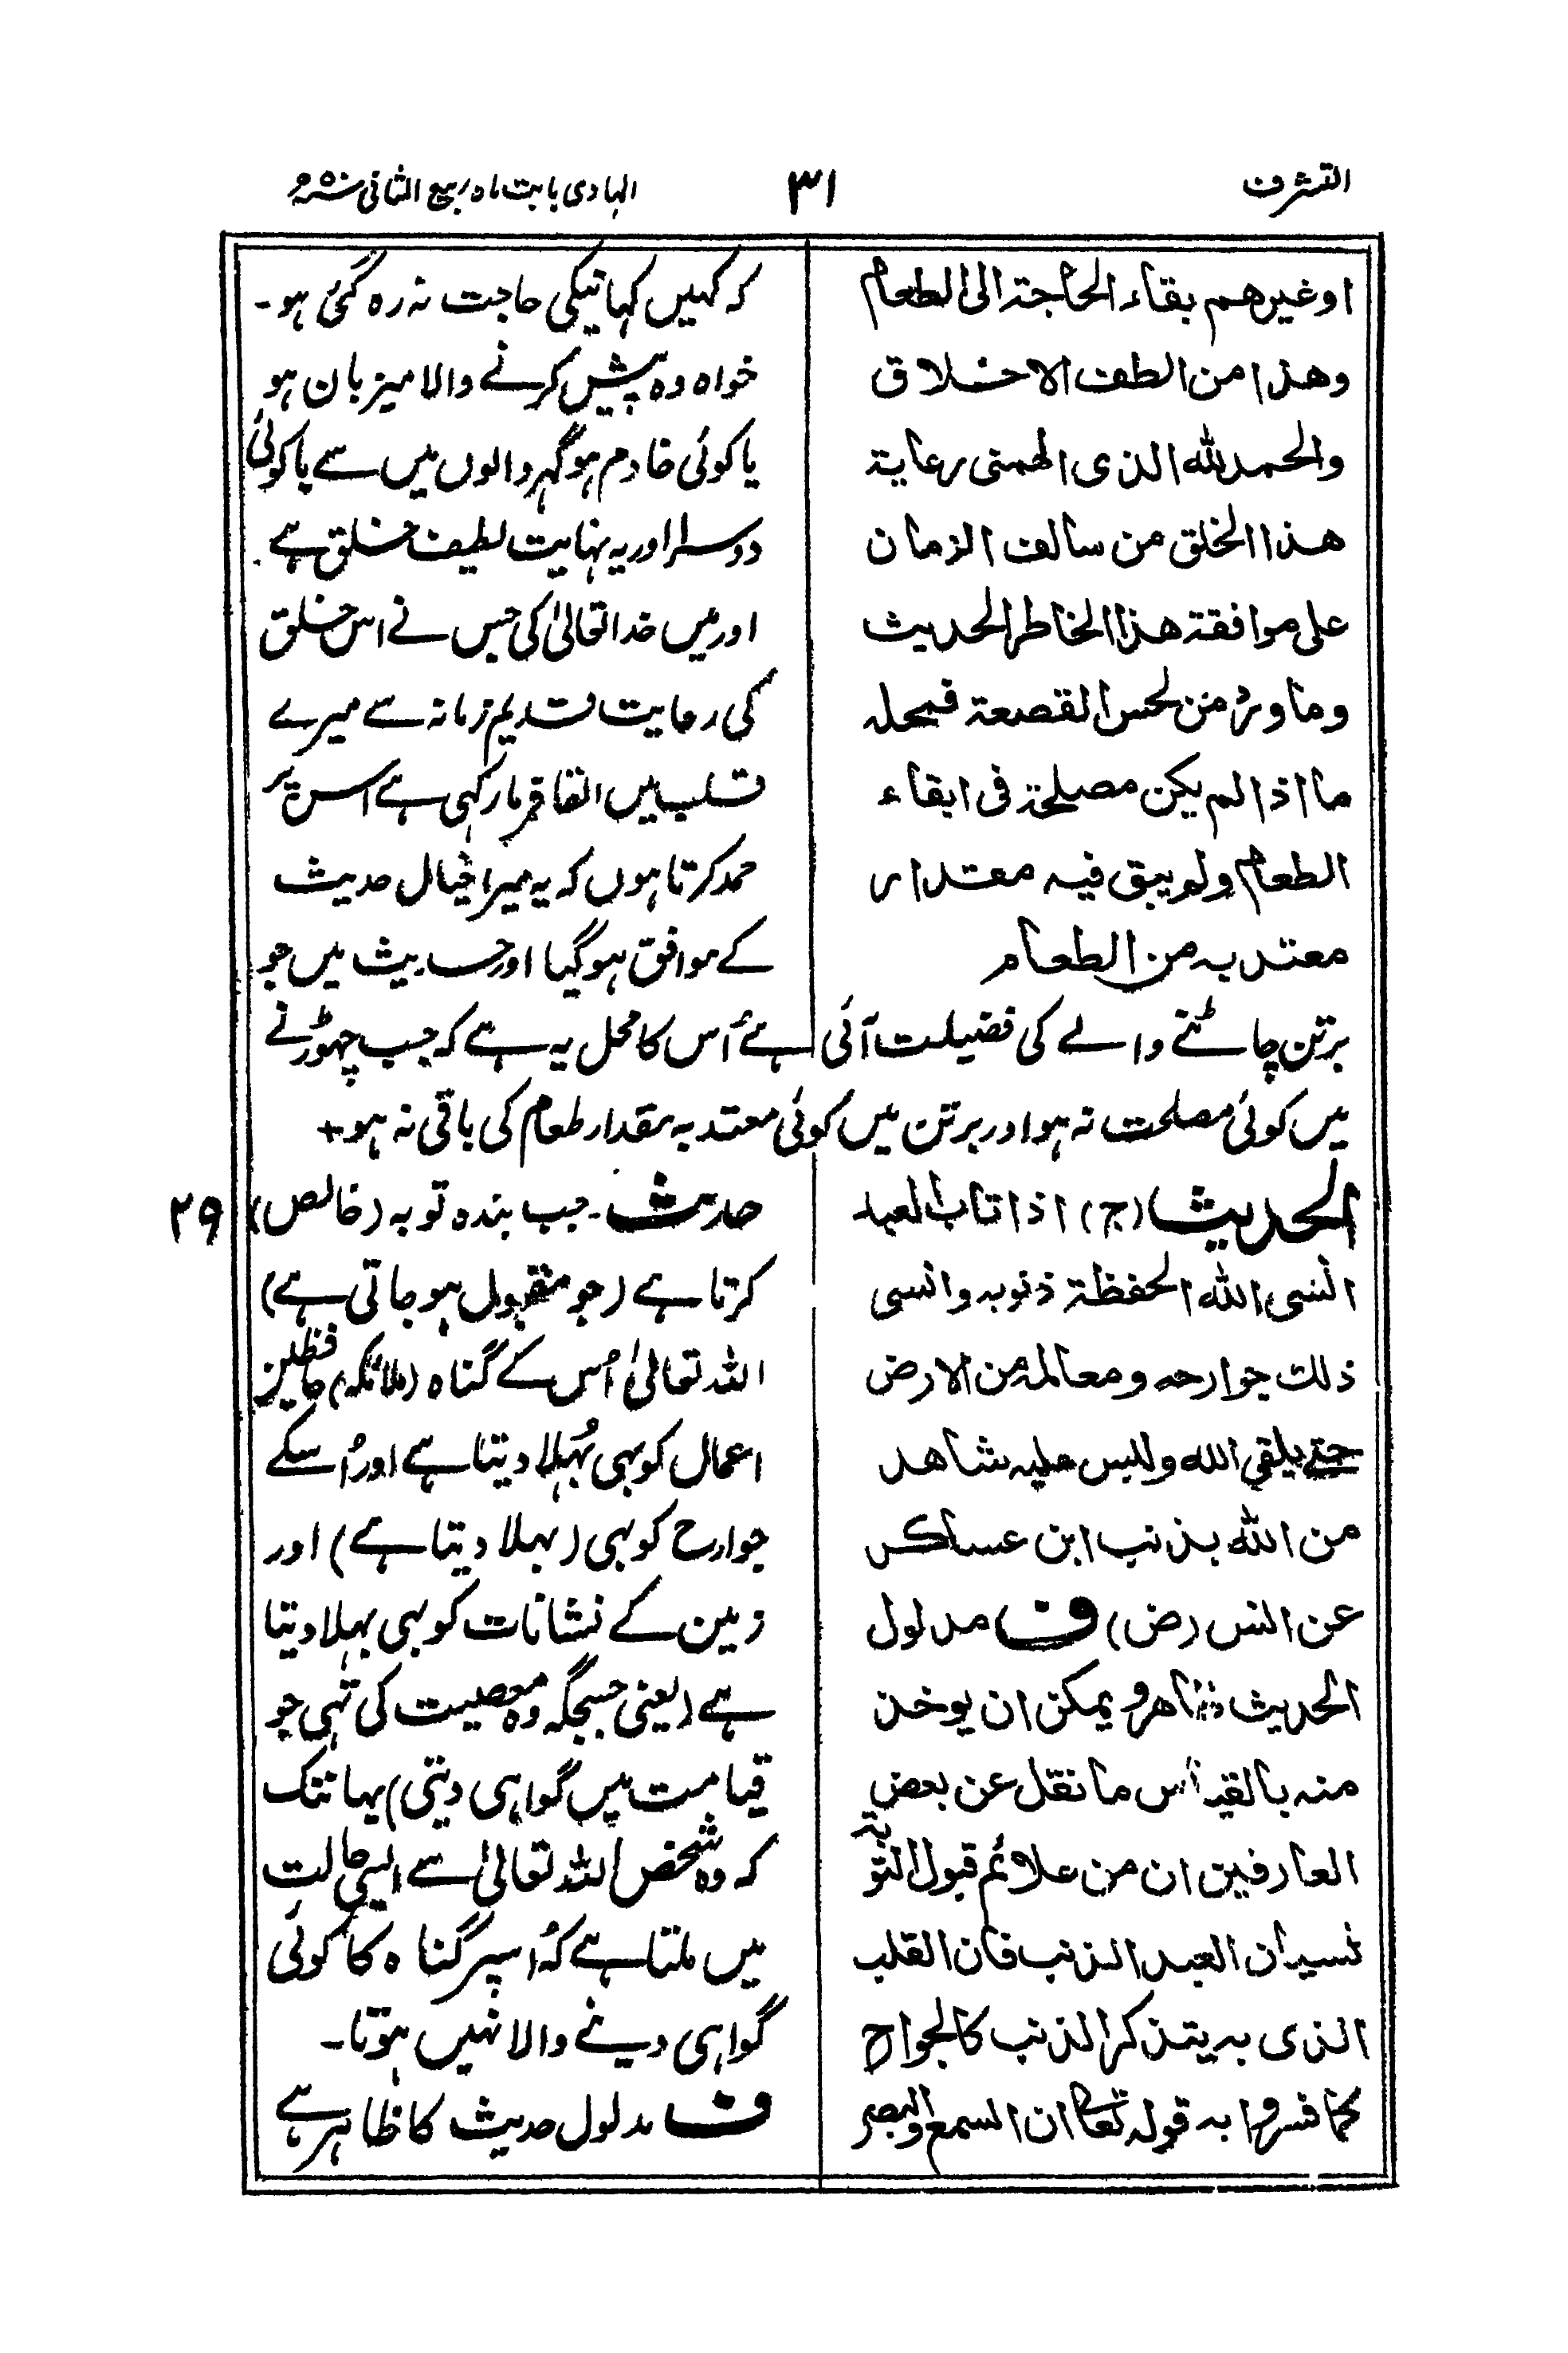 التشرف
۳۱
الہادی بابت ماہ ربیع الثانی
اوغیرهم بقاء الحاجة الی الطعام
وهذا من الطف الاخلاق
والحمد لله الذی الهمنی رعایة
هذا الخلق من سالف الزمان
علی موافقة هذا الخاطر الحدیث
وما ورد من لحس القصعة فمحله
ما اذا لم یکن مصلحة فی ابقاء
الطعام ولم یبق فیه مقدار
معتد به من الطعام
کہ کہیں کہانیکی حاجت نہ رہ گئی ہو۔
خواہ وہ پیش کرنے والا میزبان ہو
یا کوئی خادم ہو گہر والوں میں سے یا کوئی
دوسرا اور یہ نہایت لطیف خلق ہے
اور میں خدا تعالیٰ کی جس نے اس خلق
کی رعایت قدیم زمانہ سے میرے
قلب میں القا فرما رکہی ہے اس پر
حمد کرتا ہوں کہ یہ میرا خیال حدیث
کے موافق ہو گیا اور حدیث میں جو
برتن چاٹنے والے کی فضیلت آئی ہے اُس کا محل یہ ہے کہ جب چہوڑنے
میں کوئی مصلحت نہ ہو اور برتن میں کوئی معتد بہ مقدار طعام کی باقی نہ ہو+
الحدیث (ج) اذا تاب العبد
انسی الله الحفظة ذنوبه وانسی
ذلك جوارحه ومعالمه من الارض
حتی یلقی الله ولیس علیه شاهد
من الله بذنب ابن عساکر
عن انس (رض) ف مدلول
الحدیث ظاهر ویمکن ان یوخذ
منه بالقیاس ما نقل عن بعض
العارفین ان من علائم قبول التوبة
نسیان العبد الذنب فان القلب
الذی به یتذکر الذنب کالجوارح
کما فسروا به قوله تعالی ان السمع والبصر
۲۹
حدیث۔ جب بندہ توبہ (خالص)
کرتا ہے (جو مقبول ہو جاتی ہے)
اللہ تعالیٰ اُس کے گناہ (ملائکہ) حافظین
اعمال کو بہی بُہلا دیتا ہے اور اُسکے
جوارح کو بہی (بہلا دیتا ہے) اور
زمین کے نشانات کو بہی بہلا دیتا
ہے (یعنی جسجگہ وہ معصیت کی تہی جو
قیامت میں گواہی دیتی) یہانتک
کہ وہ شخص اللہ تعالیٰ سے ایسی حالت
میں ملتا ہے کہ اُسپر گناہ کا کوئی
گواہی دینے والا نہیں ہوتا۔
ف مدلول حدیث کا ظاہر ہے